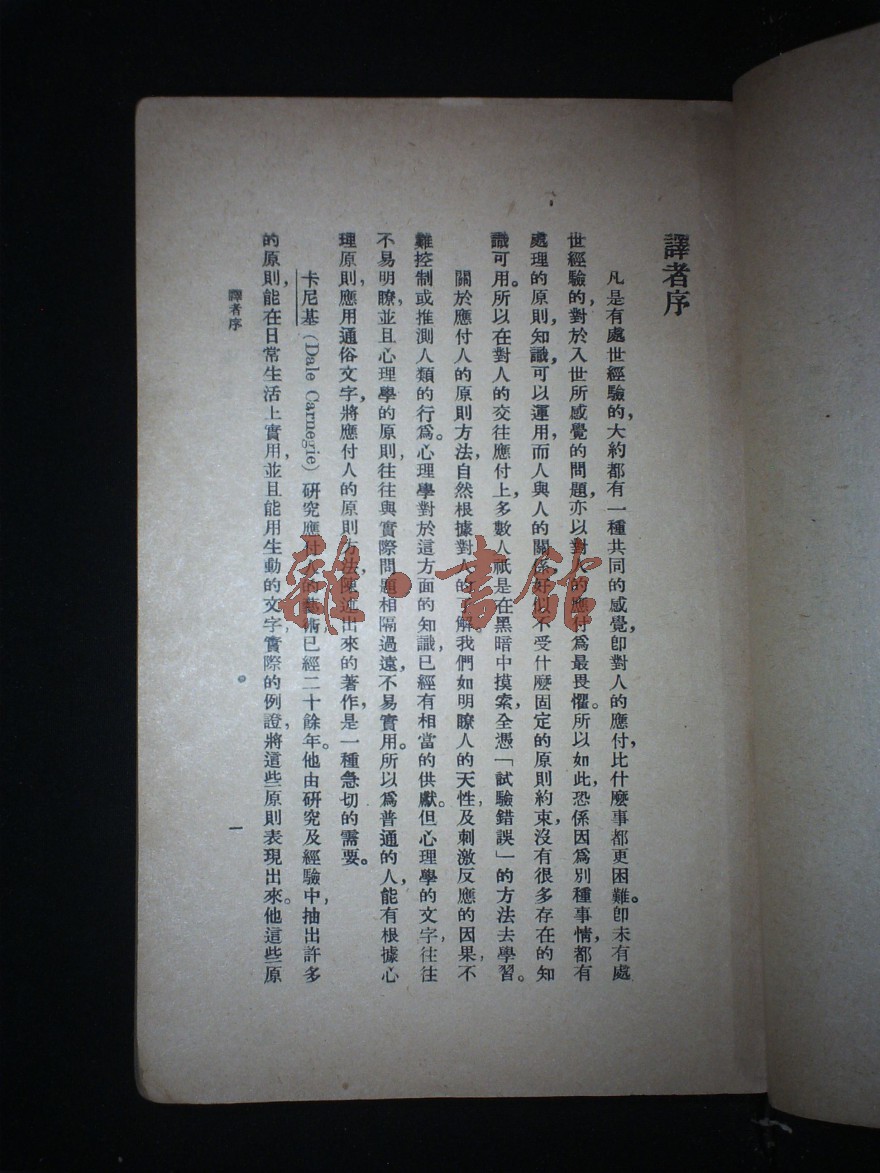 譯者序
凡是有處世經驗的,大約都有一種共同的感覺,卽對人的應付,比什麼事都更困難。卽未有處
世經驗的,對於入世所感覺的問題,亦以對人的應付爲最畏懼。所以如此,恐係因爲別種事情,都有
處理的原則,知識,可以運用,而人與人的關係好似不受什麼固定的原則約束,沒有很多存在的知
識可用。所以在對人的交往應付上,多數人祇是在黑暗中摸索,全憑「試驗錯誤」的方法去學習。
關於應付人的原則方法,自然根據對人的解。我們如明瞭人的天性,及刺激反應的因果,不
難控制或推測人類的行爲。心理學對於這方面的知識,已經有相當的供獻。但心理學的文字,往往
不易明瞭,並且心理學的原則,往往與實際問題相隔過遠,不易實用。所以爲普通的人,能有根據心
理原則,應用通俗文字,將應付人的原則方法,陳述出來的著作,是一種急切的需要。
卡尼基(Dale Carnegie)研究應付人的藝術,已經二十餘年。他由研究及經驗中,抽出許多
的原則,能在日常生活上實用,並且能用生動的文字,實際的例證,將這些原則表現出來。他這些原
譯者序
一
雜·書館